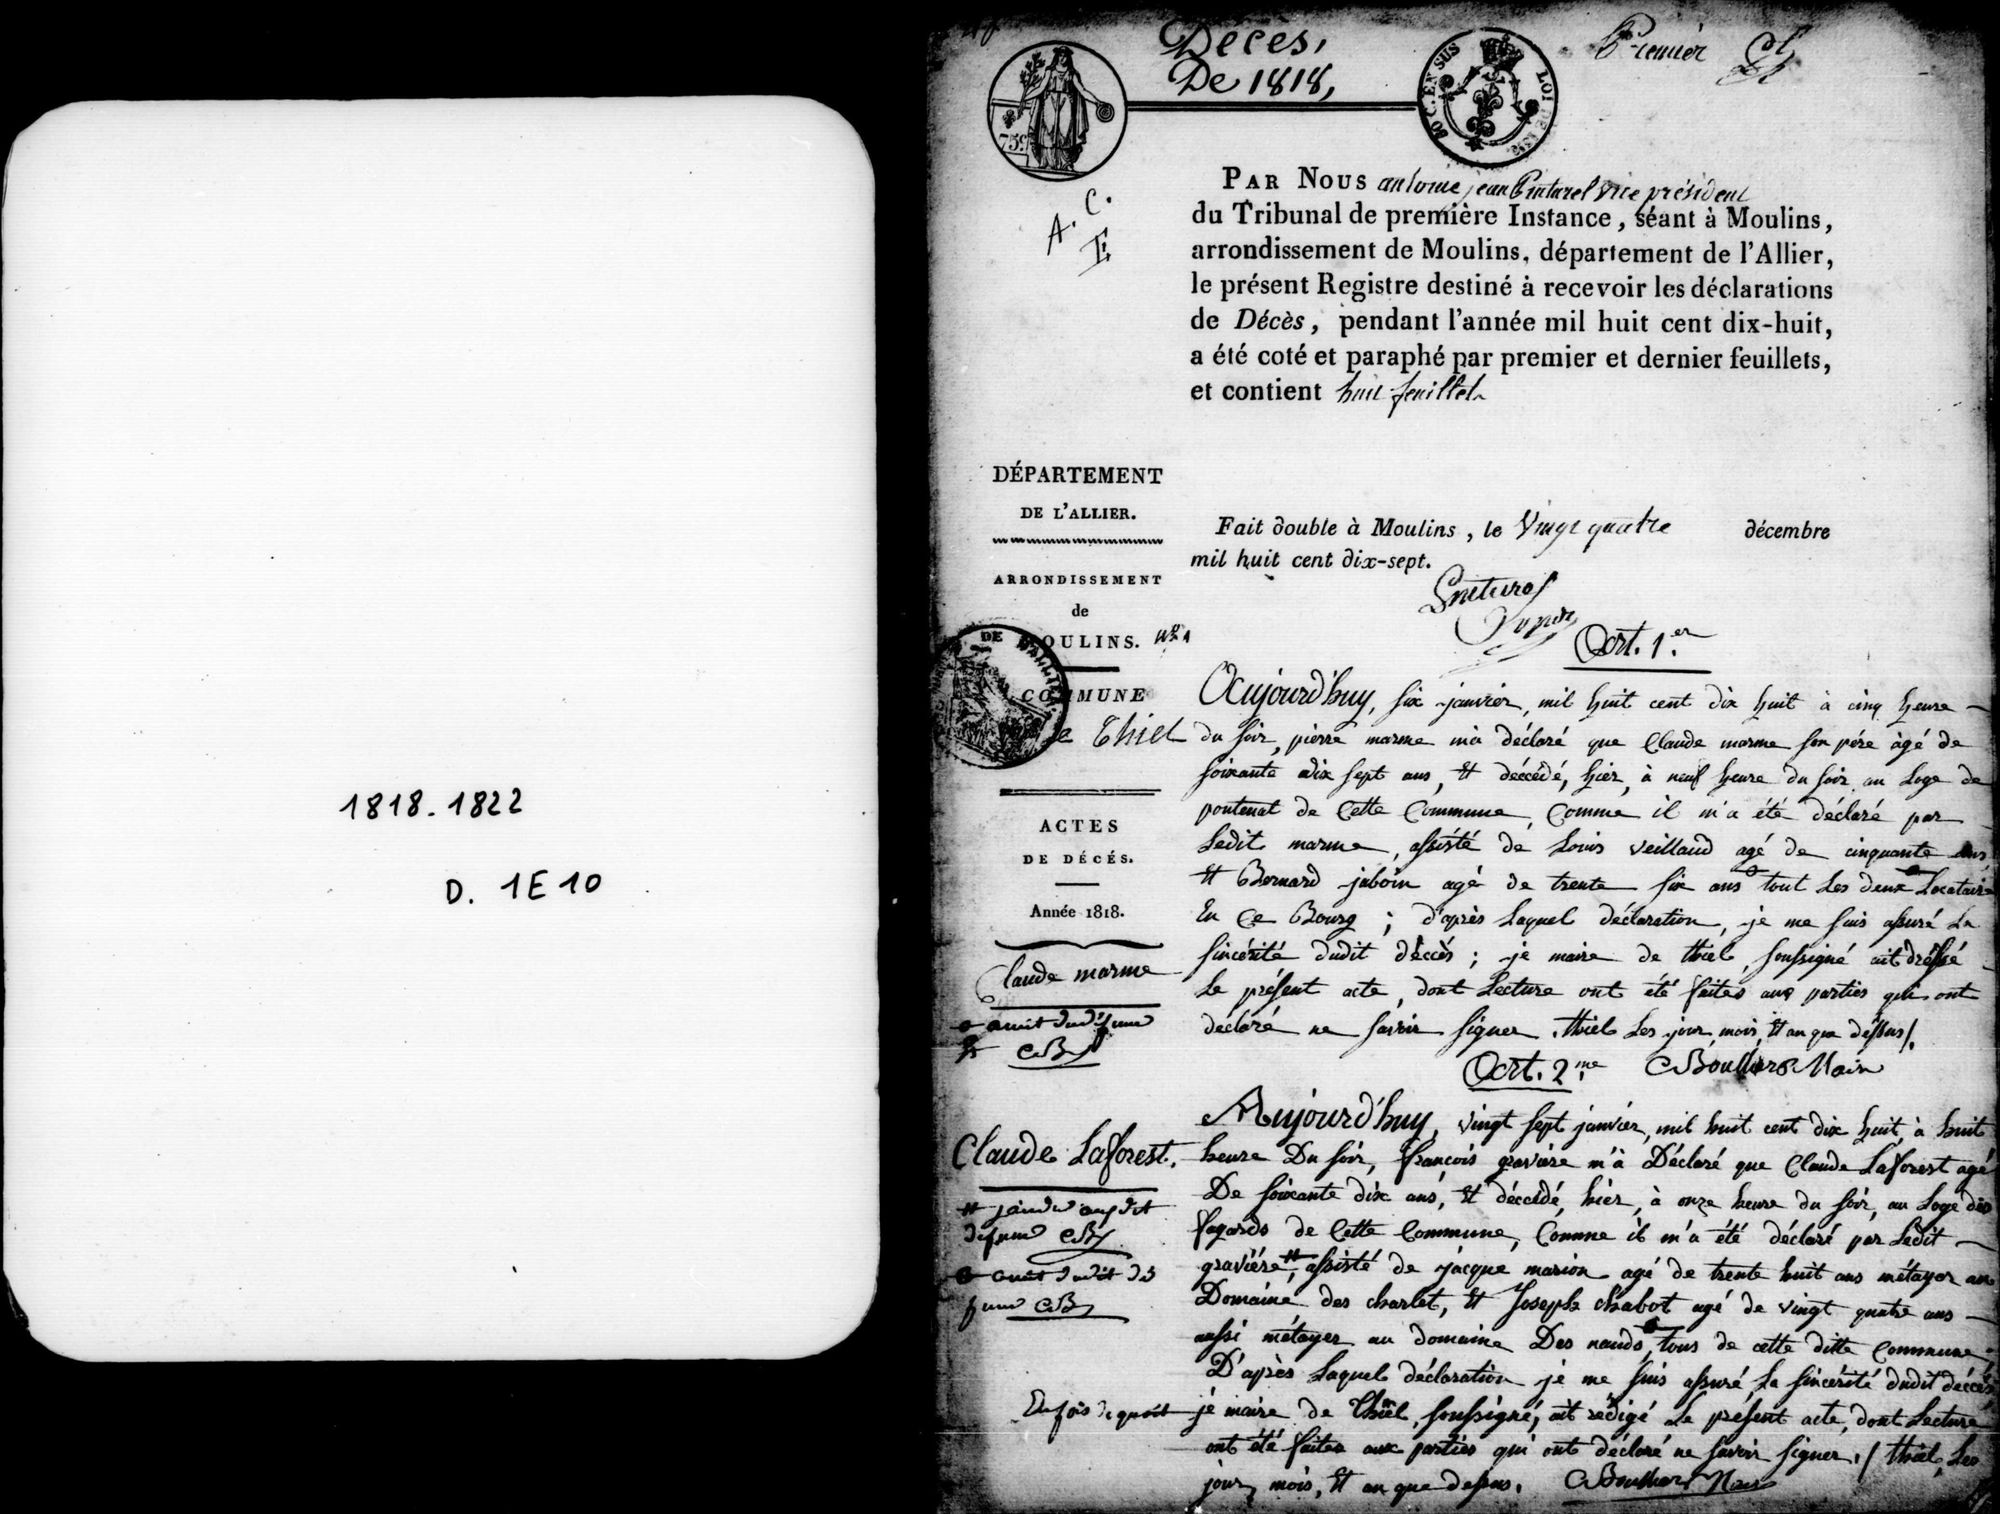 1818-1822
D. 1E10
Décès,
De 1818,
Premier
75c
30 C. EN SUS LOI DE
A. C.
E
PAR NOUS antoine jean vice président
du Tribunal de première Instance, séant à Moulins,
arrondissement de Moulins, département de l'Allier,
le présent Registre destiné à recevoir les déclarations
de Décès, pendant l'année mil huit cent dix-huit,
a été coté et paraphé par premier et dernier feuillets,
et contient huit feuillets
Fait double à Moulins, le Vingt quatre décembre
mil huit cent dix-sept.
DÉPARTEMENT
DE L'ALLIER.
ARRONDISSEMENT
de
MOULINS. N° 1
COMMUNE
de Thiel
ACTES
DE DÉCÉS.
Année 1818.
Claude marme
amit dud. défunt
CB
Art. 1.er
Aujourd'huy, six janvier, mil huit cent dix huit à cinq heure
du soir, pierre marme m'a déclaré que Claude marme son père àgé de
soixante dix sept ans, Et déccédé, hier, à neuf heure du soir, au Loge de
pontenat de Cette Commune, Comme il m'a été déclaré par
Ledit marme, assisté de Louis Veillaud agé de cinquante ans,
Et Bernard jaboin agé de trente six ans tout Les deux Locataire
En Ce Bourg; d'après Laquel déclaration, je me suis assuré La
sincérité dudit déccès; je maire de thiel, soussigné ait dréssé
Le présent acte, dont Lecture ont été faites aux parties qui ont
déclaré ne savoir signer. thiel Les jour, mois, Et an que déssus/.
Art. 2.me Maire
Claude Laforest.
# jendre audit
défunt CB
amit dudit dé
funt CB
En fois de quoit
Aujourd'huy, vingt sept janvier, mil huit cent dix huit, à huit
heure Du soir, françois gravière m'à Déclaré que Claude Laforest agé
De soixante dix ans, Et déccédé, hier, à onze heure du soir, au Loge des
fagards de Cette Commune, Comme il m'a été déclaré par Ledit
gravière #, assisté de jacque marion agé de trente huit ans métayer au
Domaine des charlet, Et Joseph chabot agé de vingt quatre ans
aussi métayer au domaine Des nauds, tous de cette ditte Commune;
D'après Laquel déclaration je me suis assuré La sincérité dudit déccès
jé maire de Thiel, soussigné, ait rédigé Le présent acte, dont Lecture
ont été faites aux parties qui ont déclaré ne savoir signer. / thiel, Les
jour, mois, Et an que dessus. Maire